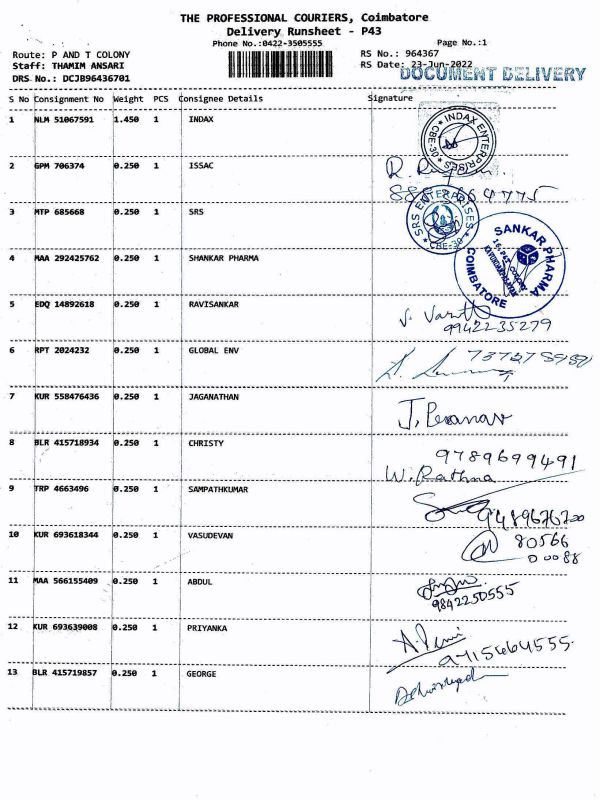 THE PROFESSIONAL COURIERS, Coimbatore
Delivery Runsheet - P43
Phone No.:0422-3505555 Page No.:1
Route: P AND T COLONY RS No.: 964367
Staff: THAMIM ANSARI RS Date: 23-Jun-2022
DOCUMENT DELIVERY
DRS No.: DCJB96436701
S No Consignment No Weight PCS Consignee Details Signature
1 NLM 51067591 1.450 1 INDAX
INDAX ENTERPRISES CBE-30
2 GPM 706374 0.250 1 ISSAC
3 MTP 685668 0.250 1 SRS
SRS ENTERPRISES CBE-30
4 MAA 292425762 0.250 1 SHANKAR PHARMA
SANKAR PHARMA COIMBATORE
5 EDQ 14892618 0.250 1 RAVISANKAR
9942235279
6 RPT 2024232 0.250 1 GLOBAL ENV
7 KUR 558476436 0.250 1 JAGANATHAN
8 BLR 415718934 0.250 1 CHRISTY
9789699491
W. Rathna
9 TRP 4663496 0.250 1 SAMPATHKUMAR
10 KUR 693618344 0.250 1 VASUDEVAN
80566
00088
11 MAA 566155409 0.250 1 ABDUL
9842250555
12 KUR 693639008 0.250 1 PRIYANKA
9715464555
13 BLR 415719857 0.250 1 GEORGE